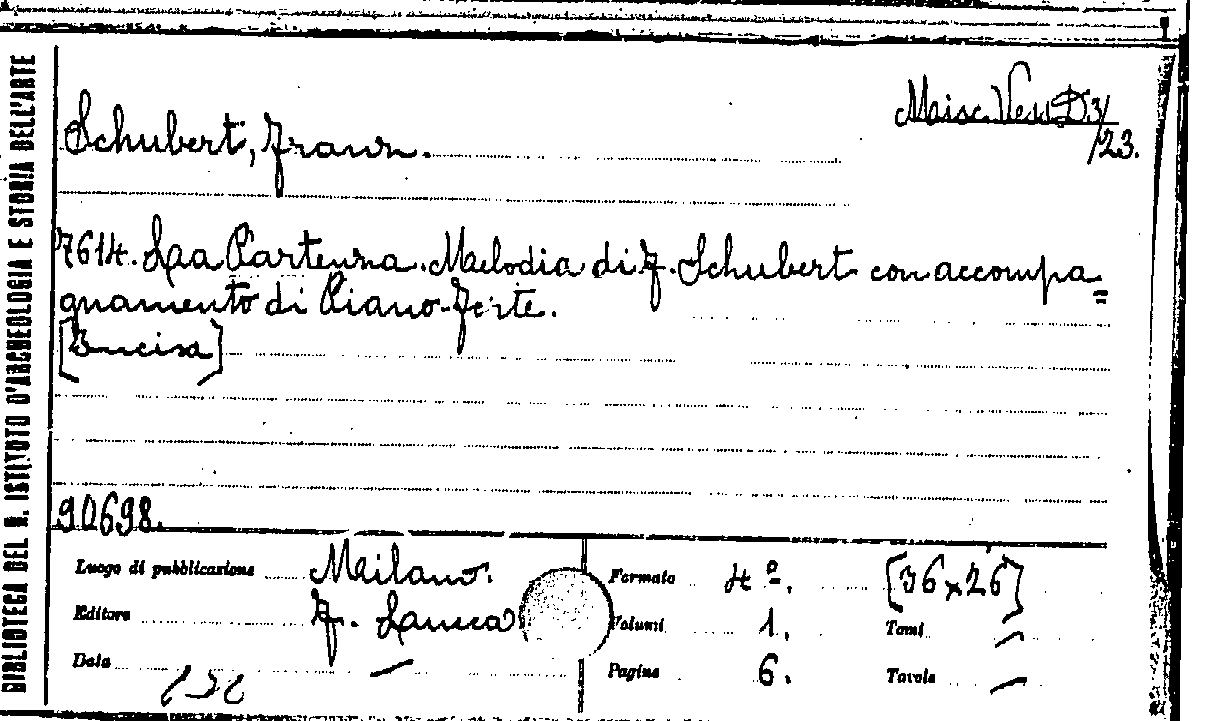 BIBLIOTECA DEL R. ISTITUTO D'ARCHEOLOGIA E STORIA DELL'ARTE
Misc. Vess D3/
/23.
Schubert, Franz.
7614. La Partenza. Melodia di F. Schubert con accompa=
gnamento di Piano-forte.
[Incisa]
90698.
Luogo di pubblicazione Milano.
Editore F. Lucca
Data —
Formato 4º. [36x26]
Volumi 1. Tomi —
Pagine 6. Tavole —